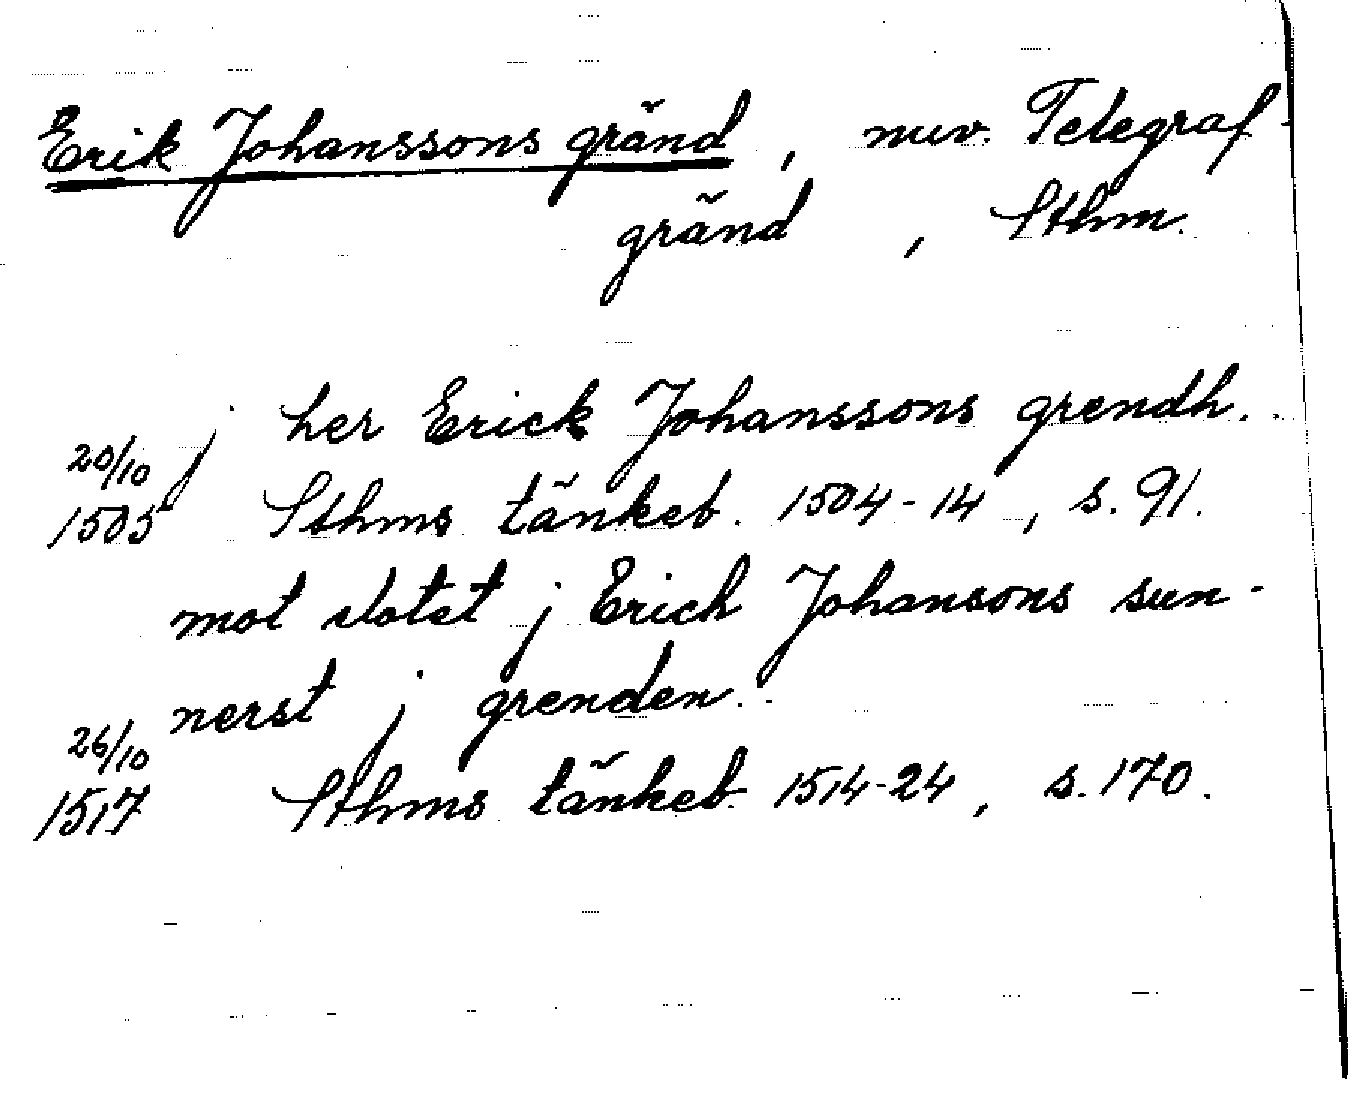 Erik Johanssons gränd, nuv. Telegraf-
gränd, Sthm.
j her Erick Johanssons grendh.
20/10
1505 Sthms tänkeb. 1504-14, s. 91.
mot slotet j Erich Johansons sun-
nerst j grenden.
26/10
1517 Sthms tänkeb. 1514-24, s. 170.